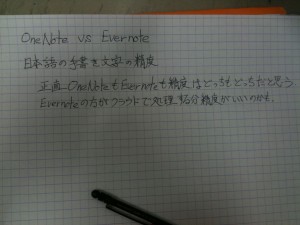 OneNote vs Evernote
日本語の手書き文字の精度
正直OneNoteもEvernoteも精度はどっちもどっちだと思う
Evernoteの方がクラウドで処理する分精度がいいのかも.